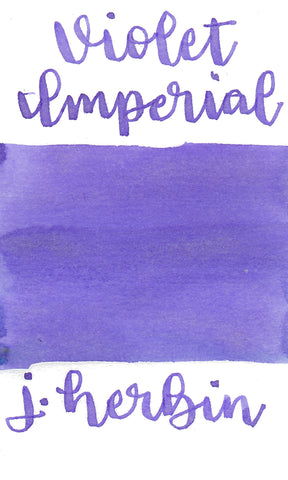 Violet
Imperial
j. herbin